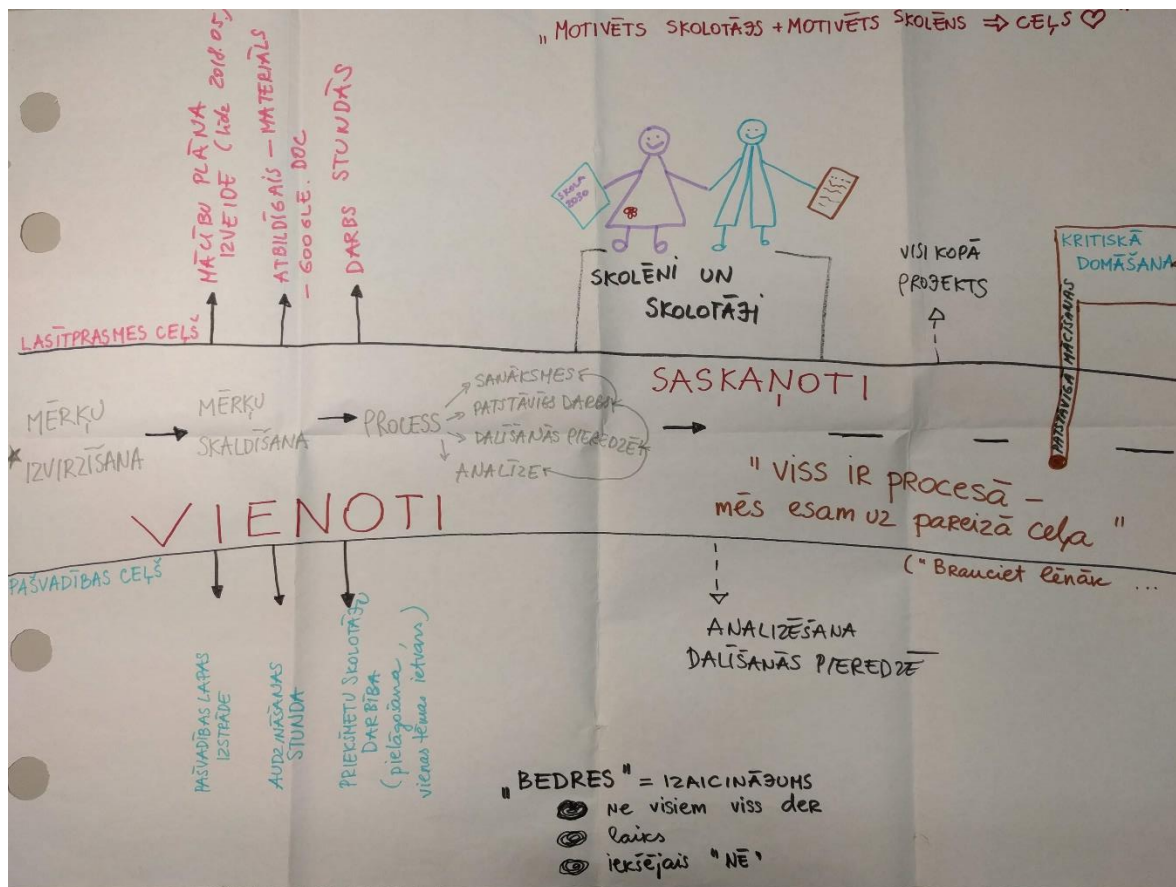 „MOTIVĒTS SKOLOTĀJS + MOTIVĒTS SKOLĒNS ⇒ CEĻŠ ♡"
MĀCĪBU PLĀNA
IZVEIDE (līdz 2018.05.
ATBILDĪGAIS – MATERIĀLS
– GOOGLE. DOC
DARBS STUNDĀS
SKOLA
2030
SKOLĒNI UN
SKOLOTĀJI
VISI KOPĀ
PROJEKTS
KRITISKĀ
DOMĀŠANA
PATSTĀVĪGA MĀCĪŠANĀS
LASĪTPRASMES CEĻŠ
MĒRĶU
IZVIRZĪŠANA
MĒRĶU
SKALDĪŠANA
PROCESS
SANĀKSMES
PATSTĀVĪGS DARBS
DALĪŠANĀS PIEREDZĒ
ANALĪZE
SASKAŅOTI
VIENOTI
"VISS IR PROCESĀ –
MĒS ESAM UZ PAREIZĀ CEĻA"
("Brauciet lēnāk ...
PAŠVADĪBAS CEĻŠ
PAŠVADĪBAS LAPAS
IZSTRĀDE
AUDZINĀŠANAS
STUNDA
PRIEKŠMETU SKOLOTĀJU
DARBĪBA
(pielāgošana,
vienas tēmas ietvaros)
ANALIZĒŠANA
DALĪŠANĀS PIEREDZĒ
„BEDRES" = IZAICINĀJUMS
Ne visiem viss der
laiks
iekšējais "NĒ"